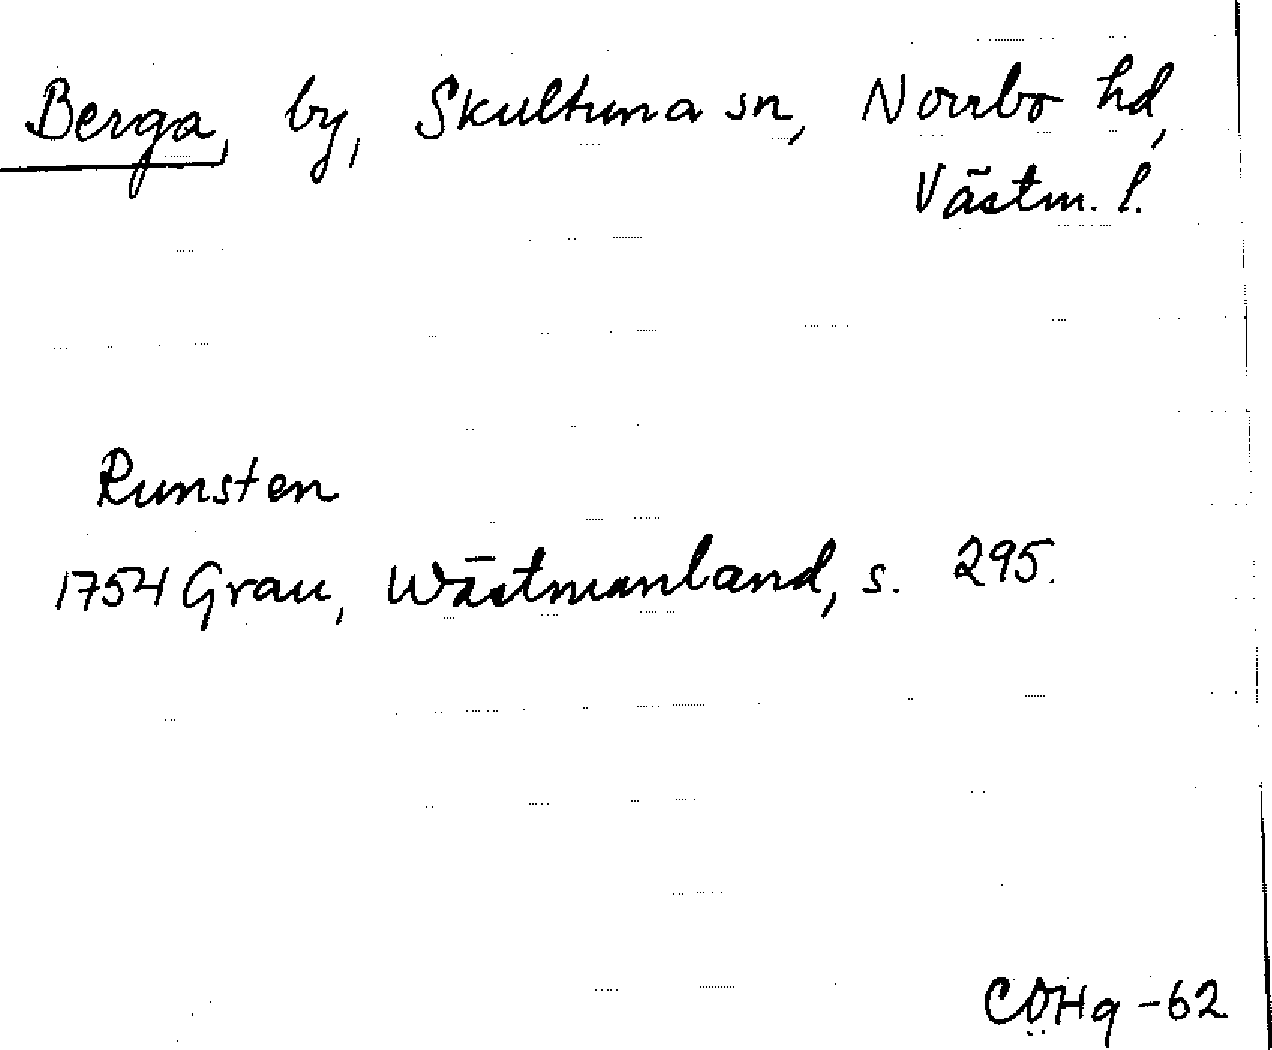 Berga, by, Skultuna sn, Norrbo hd,
Västm. l.
Runsten
1754 Grau, Wästmanland, s. 295.
CÖHg -62